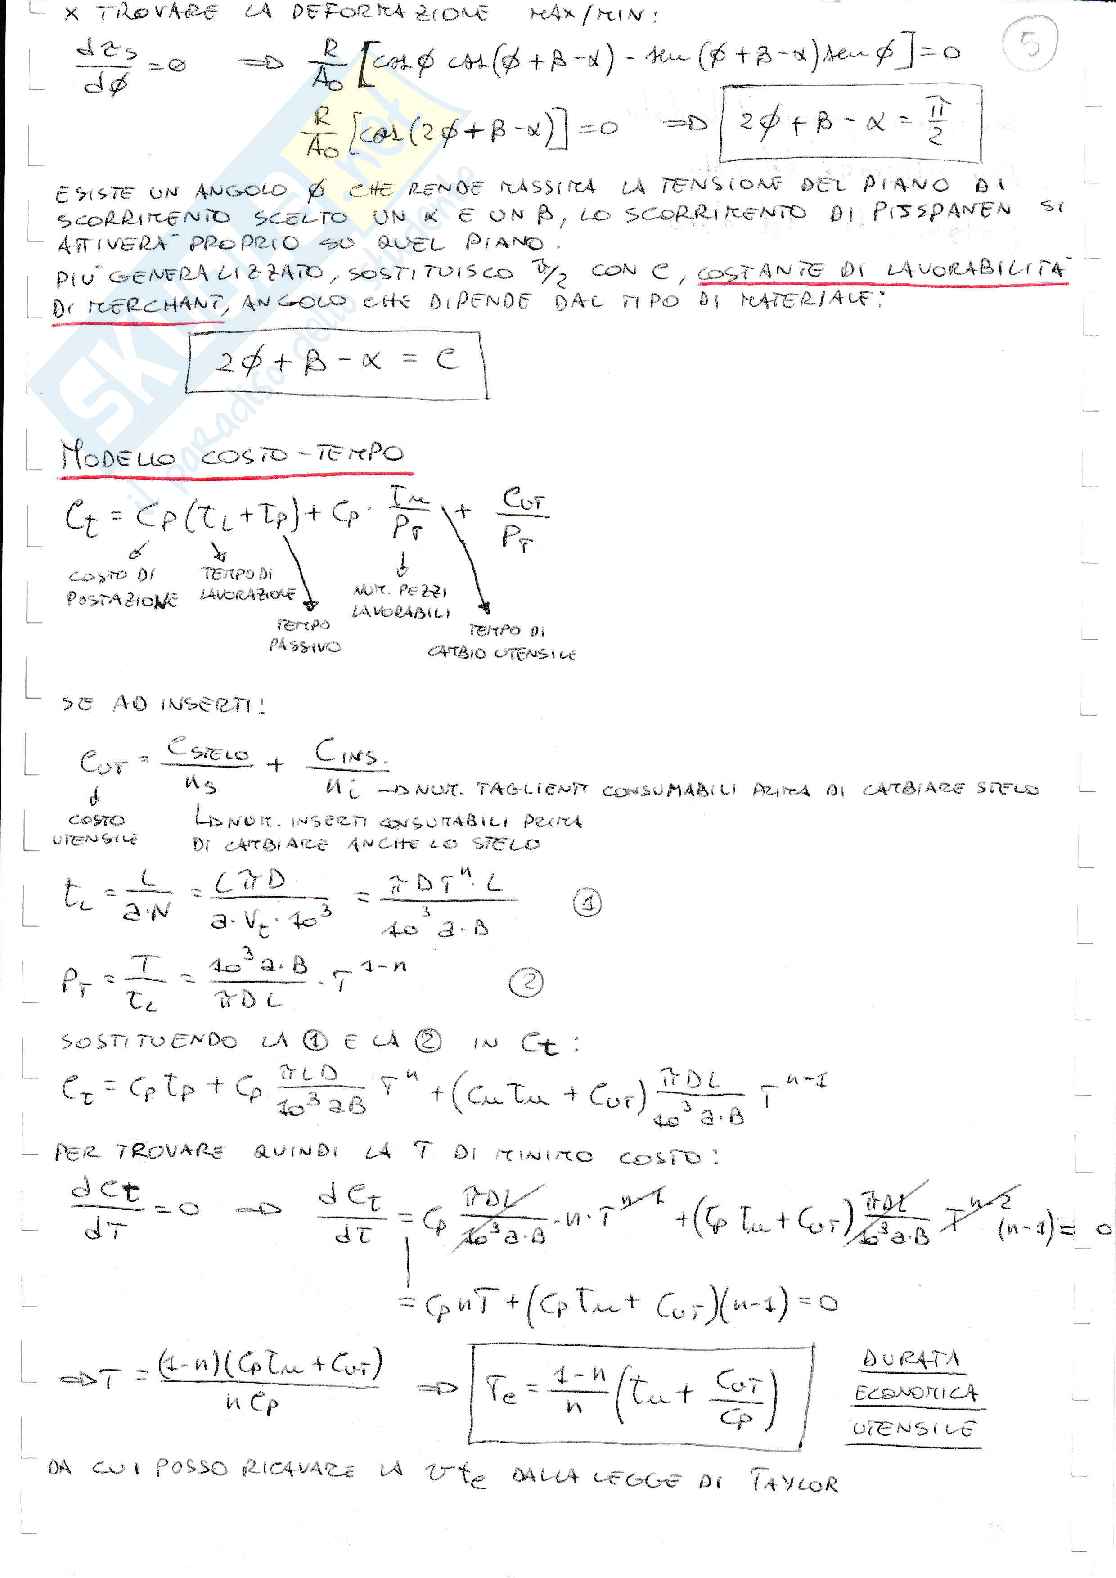 x TROVARE LA DEFORMAZIONE MAX/MIN:
5
dτs/dφ = 0 ⇒ R/A₀ [cos φ cos(φ+β-α) - sen(φ+β-α) sen φ] = 0
R/A₀ [cos(2φ+β-α)] = 0 ⇒ 2φ+β-α = π/2
ESISTE UN ANGOLO φ CHE RENDE MASSIMA LA TENSIONE DEL PIANO DI
SCORRIMENTO SCELTO UN α E UN β, LO SCORRIMENTO DI PIJSPANEN SI
ATTIVERÀ PROPRIO SU QUEL PIANO.
PIÙ GENERALIZZATO, SOSTITUISCO π/2 CON C, COSTANTE DI LAVORABILITÀ
DI MERCHANT, ANGOLO CHE DIPENDE DAL TIPO DI MATERIALE:
2φ+β-α = C
MODELLO COSTO-TEMPO
Ct = Cp(τL+τp) + Cp · τu/PT + CUT/PT
COSTO DI POSTAZIONE
TEMPO DI LAVORAZIONE
TEMPO PASSIVO
NUM. PEZZI LAVORABILI
TEMPO DI CAMBIO UTENSILE
SE AD INSERTI:
CUT = CSTELO/ns + CINS./ni → NUM. TAGLIENTI CONSUMABILI PRIMA DI CAMBIARE STELO
COSTO UTENSILE
NUM. INSERTI CONSUMABILI PRIMA
DI CAMBIARE ANCHE LO STELO
tL = L/(a·N) = LπD/(a·Vt·10³) = πDTⁿ·L/(10³a·B) ①
PT = T/τL = 10³a·B/(πDL) · T¹⁻ⁿ ②
SOSTITUENDO LA ① E LA ② IN Ct:
Ct = Cpτp + Cp πLD/(10³aB) Tⁿ + (Cuτu + CUT) πDL/(10³a·B) Tⁿ⁻¹
PER TROVARE QUINDI LA T DI MINIMO COSTO:
dCt/dT = 0 ⇒ dCt/dτ = Cp πDL/(10³a·B) · n · Tⁿ⁻¹ + (Cpτu + CUT) πDL/(10³a·B) Tⁿ⁻² (n-1) = 0
= CpnT + (Cpτu + CUT)(n-1) = 0
⇒ T = (1-n)(Cpτu + CUT)/(nCp) ⇒ Te = (1-n)/n (tu + CUT/Cp)
DURATA
ECONOMICA
UTENSILE
DA CUI POSSO RICAVARE LA vte DALLA LEGGE DI TAYLOR